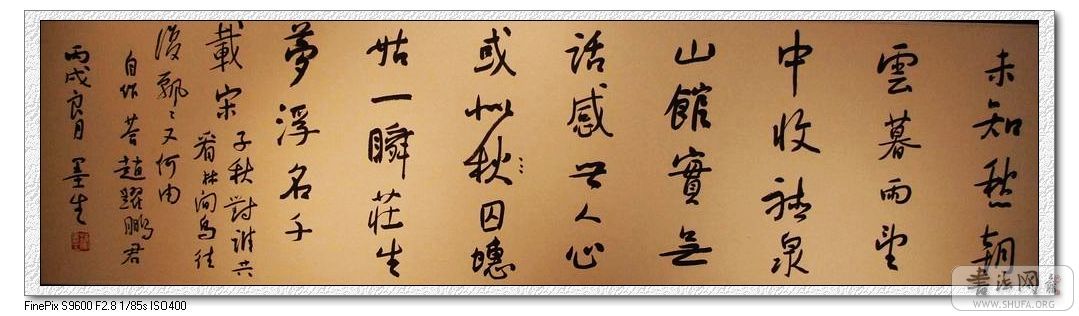 未知愁朝
雲暮雨望
中收泉
山館實無
話感世人心
或似秋囚蟪
姑一瞬莊生
夢浮名千
載宋子秋對誰共
看林间鸟往
復飄々又何由
自作答趙躍鵬君
丙戌良月 墨生
書法网
WWW.SHUFA.ORG
FinePix S9600 F2.8 1/85s ISO400